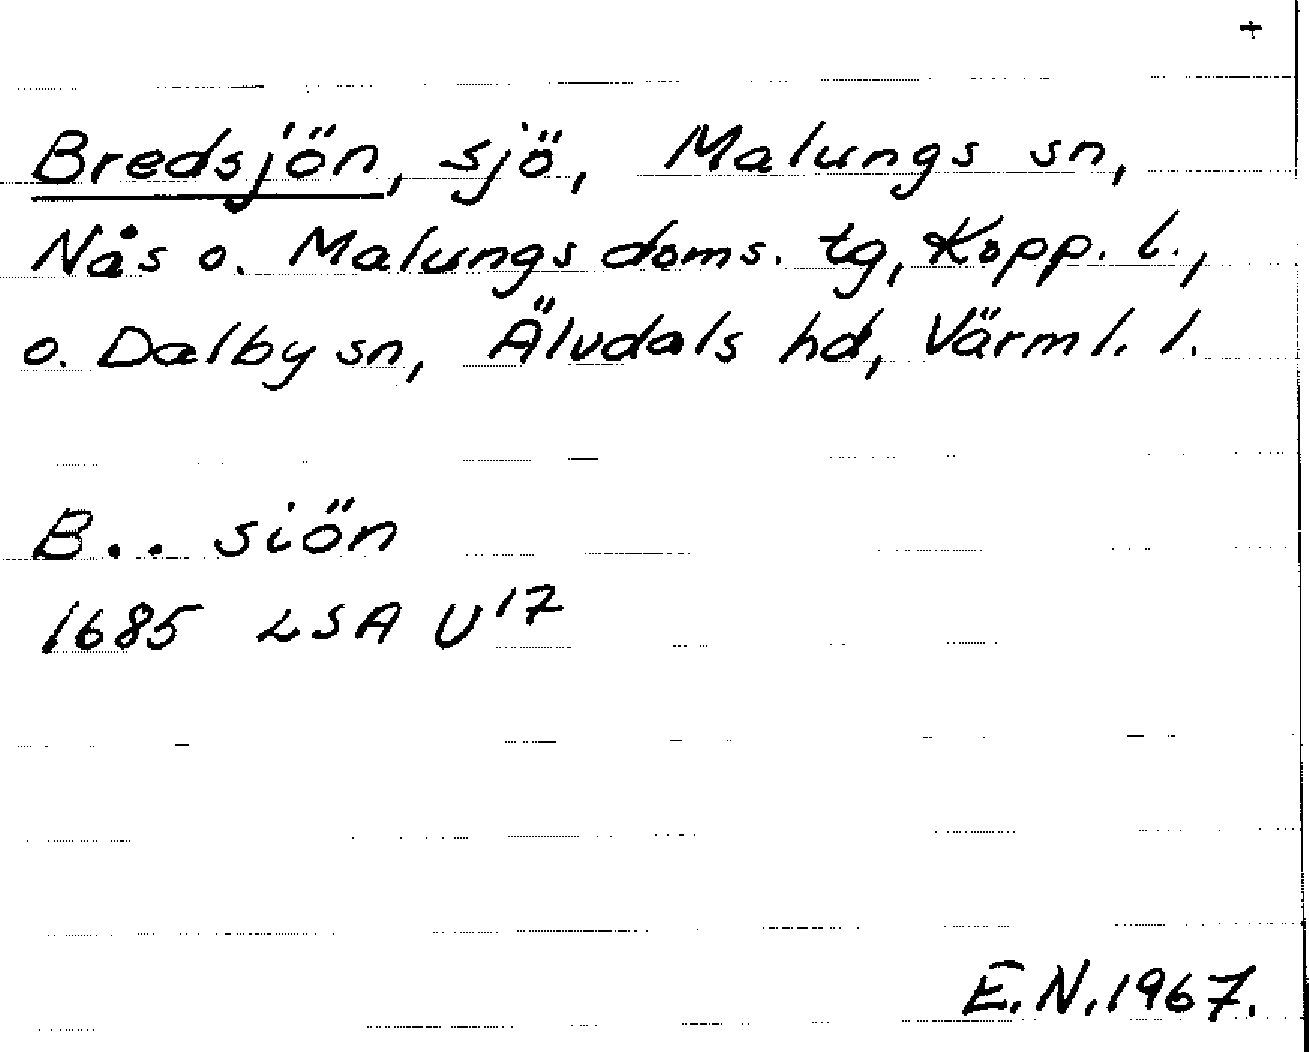 +
Bredsjön, sjö, Malungs sn,
Nås o. Malungs doms. tg, Kopp. l.,
o. Dalby sn, Älvdals hd, Värml. l.
B.. siön
1685 LSA U17
E.N. 1967.